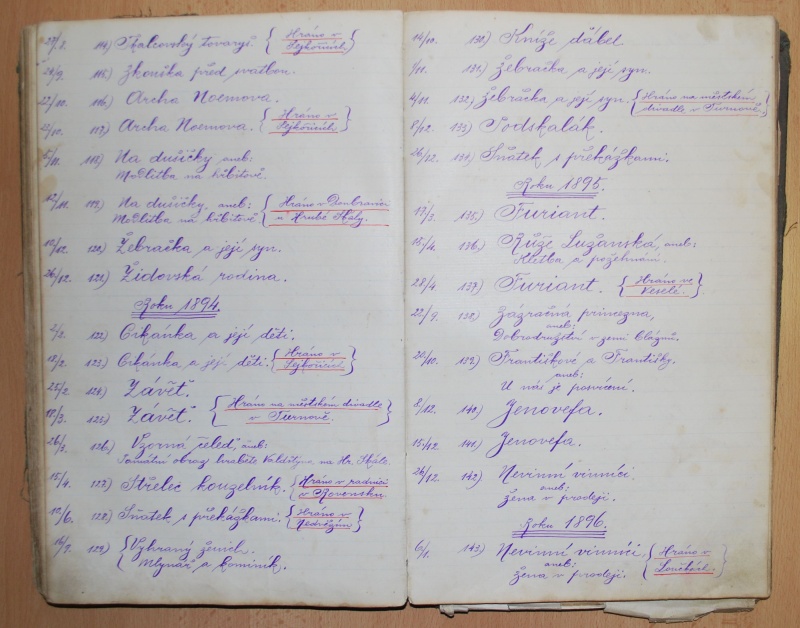 27/8. 114) Tkalcovský tovaryš. {Hráno v
Sejkořicích}
24/9. 115.) Zkouška před svatbou.
22/10. 116.) Archa Noemova.
117) Archa Noemova. {Hráno v
Sejkořicích}
5/11. 118) Na dušičky aneb:
Modlitba na hřbitově.
12/11. 119.) Na dušičky, aneb: {Hráno v Doubravici
Modlitba na hřbitově u Hrubé Skály.}
120.) Žebračka a její syn.
26/12. 121.) Židovská rodina.
Roku 1894.
2/2. 122) Cikánka a její děti.
12/2. 123.) Cikánka a její děti. {Hráno v
Sejkořicích}
25/2. 124.) Závěť.
12/3. 125.) Závěť. {Hráno na městském divadle
v Turnově.}
26/3. 126.) Vzorná čeleď, aneb:
obraz hraběte Valdštýna na Hr. Skále.
15/4. 127.) Střelec kouzelník. {Hráno v radnici
v Rovensku}
10/6. 128.) Sňatek s překážkami. {Hráno v
}
16/9. 129.) {Vybraný ženich.
Mlynář a kominík.
14/10. 130.) Kníže ďábel
131.) Žebračka a její syn.
4/11. 132.) Žebračka a její syn. {Hráno na městském
divadle v Turnově.}
8/12. 133.) Podskalák.
26/12. 134.) Sňatek s překážkami.
Roku 1895.
17/3. 135.) Furiant.
15/4. 136.) Růže Lužanská, aneb:
Kletba a požehnání.
28/4 137.) Furiant. {Hráno ve
Veselé.}
22/9. 138.) Zázračná princezna,
aneb:
Dobrodružství v zemi bláznů.
20/10. 139.) Františkové a Františky.
aneb:
U nás je posvícení.
8/12. 140.) Jenovefa.
15/12 141.) Jenovefa.
26/12. 142.) Nevinní vinníci
aneb:
žena v prodeji.
Roku 1896.
6/1. 143.) Nevinní vinníci {Hráno v
aneb: Loučkách.}
žena v prodeji.